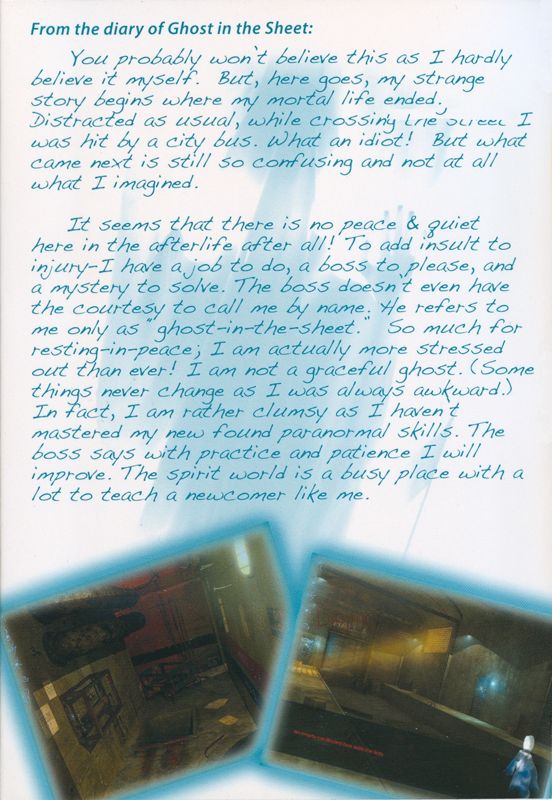 From the diary of Ghost in the Sheet:
You probably won't believe this as I hardly
believe it myself. But, here goes, my strange
story begins where my mortal life ended.
Distracted as usual, while crossing the street I
was hit by a city bus. What an idiot! But what
came next is still so confusing and not at all
what I imagined.
It seems that there is no peace & quiet
here in the afterlife after all! To add insult to
injury-I have a job to do, a boss to please, and
a mystery to solve. The boss doesn't even have
the courtesy to call me by name. He refers to
me only as "ghost-in-the-sheet." So much for
resting-in-peace; I am actually more stressed
out than ever! I am not a graceful ghost. (Some
things never change as I was always awkward.)
In fact, I am rather clumsy as I haven't
mastered my new found paranormal skills. The
boss says with practice and patience I will
improve. The spirit world is a busy place with a
lot to teach a newcomer like me.